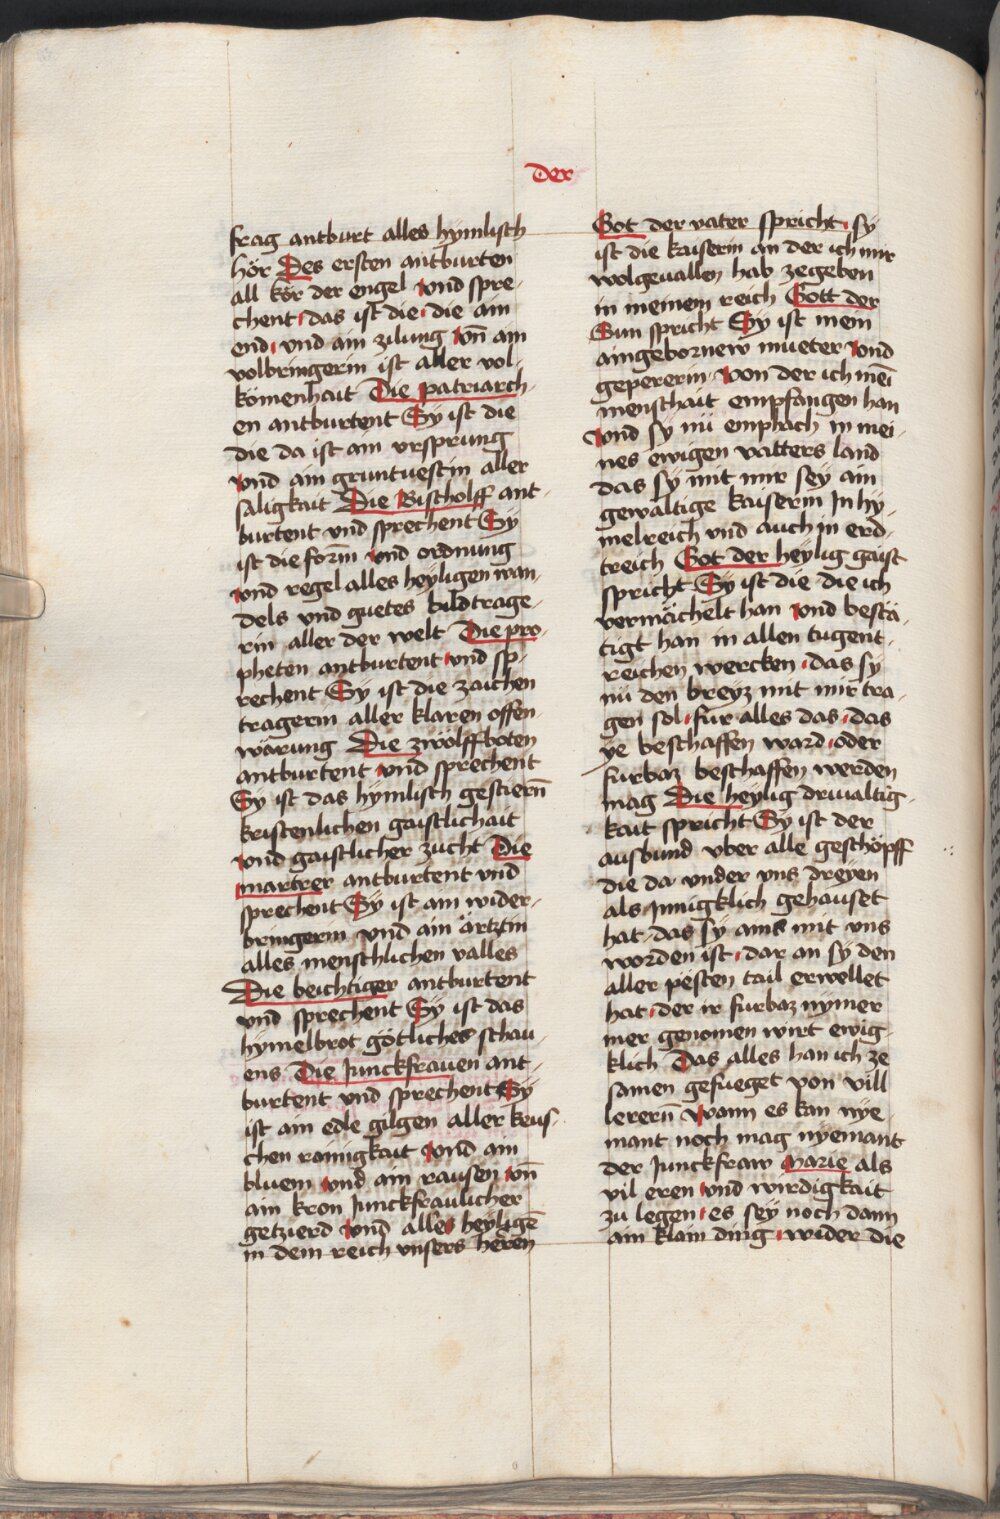 der
frag antburt alles hymlisch
hör Des ersten antburten
all kör der engel vnd spre¬
chent das ist die die ain
end vnd ain zilung vn̄ ain
volbringerin ist aller vol¬
kömenhait Die patriarch¬
en antburtent Sÿ ist die
die da ist ain vrsprung
vnd ain gruntuestin aller
saligkait Die Bischolff ant¬
burtent vnd sprechent Sÿ
ist die form̄ vnd ordnung
vnd regel alles heyligen wan¬
dels vnd guetes bildtrage¬
rin aller der welt Die pro¬
pheten antburtent vnd sp¬
rechent Sÿ ist die zaichen
tragerin aller klaren offen¬
warung Die zwölffboten
antburtent vnd sprechent
Sÿ ist das hymlisch gestiern̄
kristenlichen gaistlichait
vnd gaistlicher zucht Die
martrer antburtent vnd
sprechent Sÿ ist ain wider¬
bringerin vnd ain ärtztin
alles menschlichen valles
Die beichtiger antburtent
vnd sprechent Sÿ ist das
hymelbrot götliches schau¬
ens Die Junckfrauen ant¬
burtent vnd sprechent Sÿ
ist ain edle gilgen aller keus¬
chen rainigkait vnd ain
bluem vnd ain rausen vn̄
ain kron Junckfraulicher
getzierd vnd alle heyligē
in dem reich vnsers heren
Got der vater spricht sy
ist die kaiserin an der ich mir
wolgeuallen hab zegeben
in meinem reich Gott der
Sun spricht Sÿ ist mein
aingebornew mueter vnd
gepererin von der ich meī
menschait empfangen han
vnd sy nü emphach in mei¬
nes ewigen vatters land
das sy mit mir sey ain
gewaltige kaiserin In hy¬
melreich vnd auch in erd¬
treich Got der heylig gaist
spricht Sÿ ist die die ich
vermächelt han vnd bestä¬
tigt han in allen tugent¬
reichen wercken das sy
nü den breyz mit mir tra¬
gen sol für alles das das
ye beschaffen ward oder
furbaz beschaffen werden
mag Die heylig driualtig¬
kait spricht Sÿ ist der
ausbund vber alle geschöpff
die da vnder vns dreyen
als Innigklich gehauset
hat das sy ains mit vns
worden ist dar an sy den
aller pesten tail erwellet
hat der ir furbaz nymer
mer genomen wirt ewig¬
klich Das alles han ich ze
samen gefueget von vill
lerern̄ wann es kan nye¬
mant noch mag nyemant
der Junckfraw Marie als
vil eren vnd wirdigkait
zu legen es sey noch dann
ain klain ding wider die